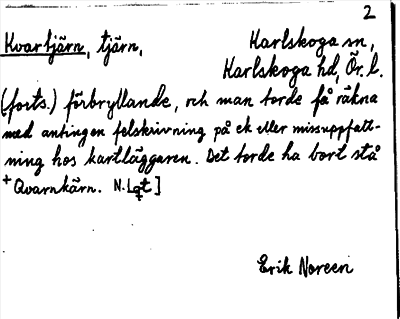 2
Kvartjärn, tjärn, Karlskoga sn,
Karlskoga hd, Ör. l.
(forts.) förbryllande, och man torde få räkna
med antingen felskrivning på ek eller missuppfatt-
ning hos kartläggaren. Det torde ha bort stå
+ Qvarnkärn. N. Lgt ]
Erik Noreen